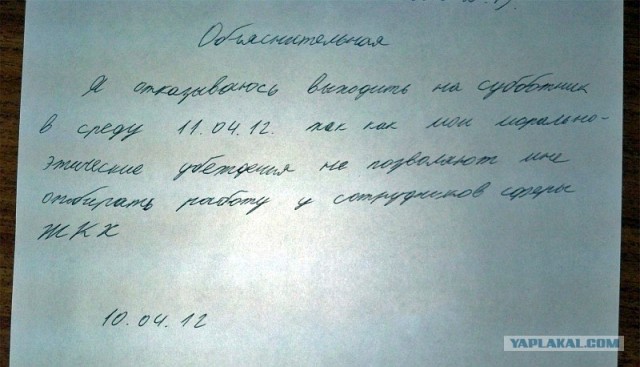 Объяснительная
Я отказываюсь выходить на субботник
в среду 11.04.12. так как мои морально-
этические убеждения не позволяют мне
отбирать работу у сотрудников сферы
ЖКХ
10.04.12
YAPLAKAL.COM